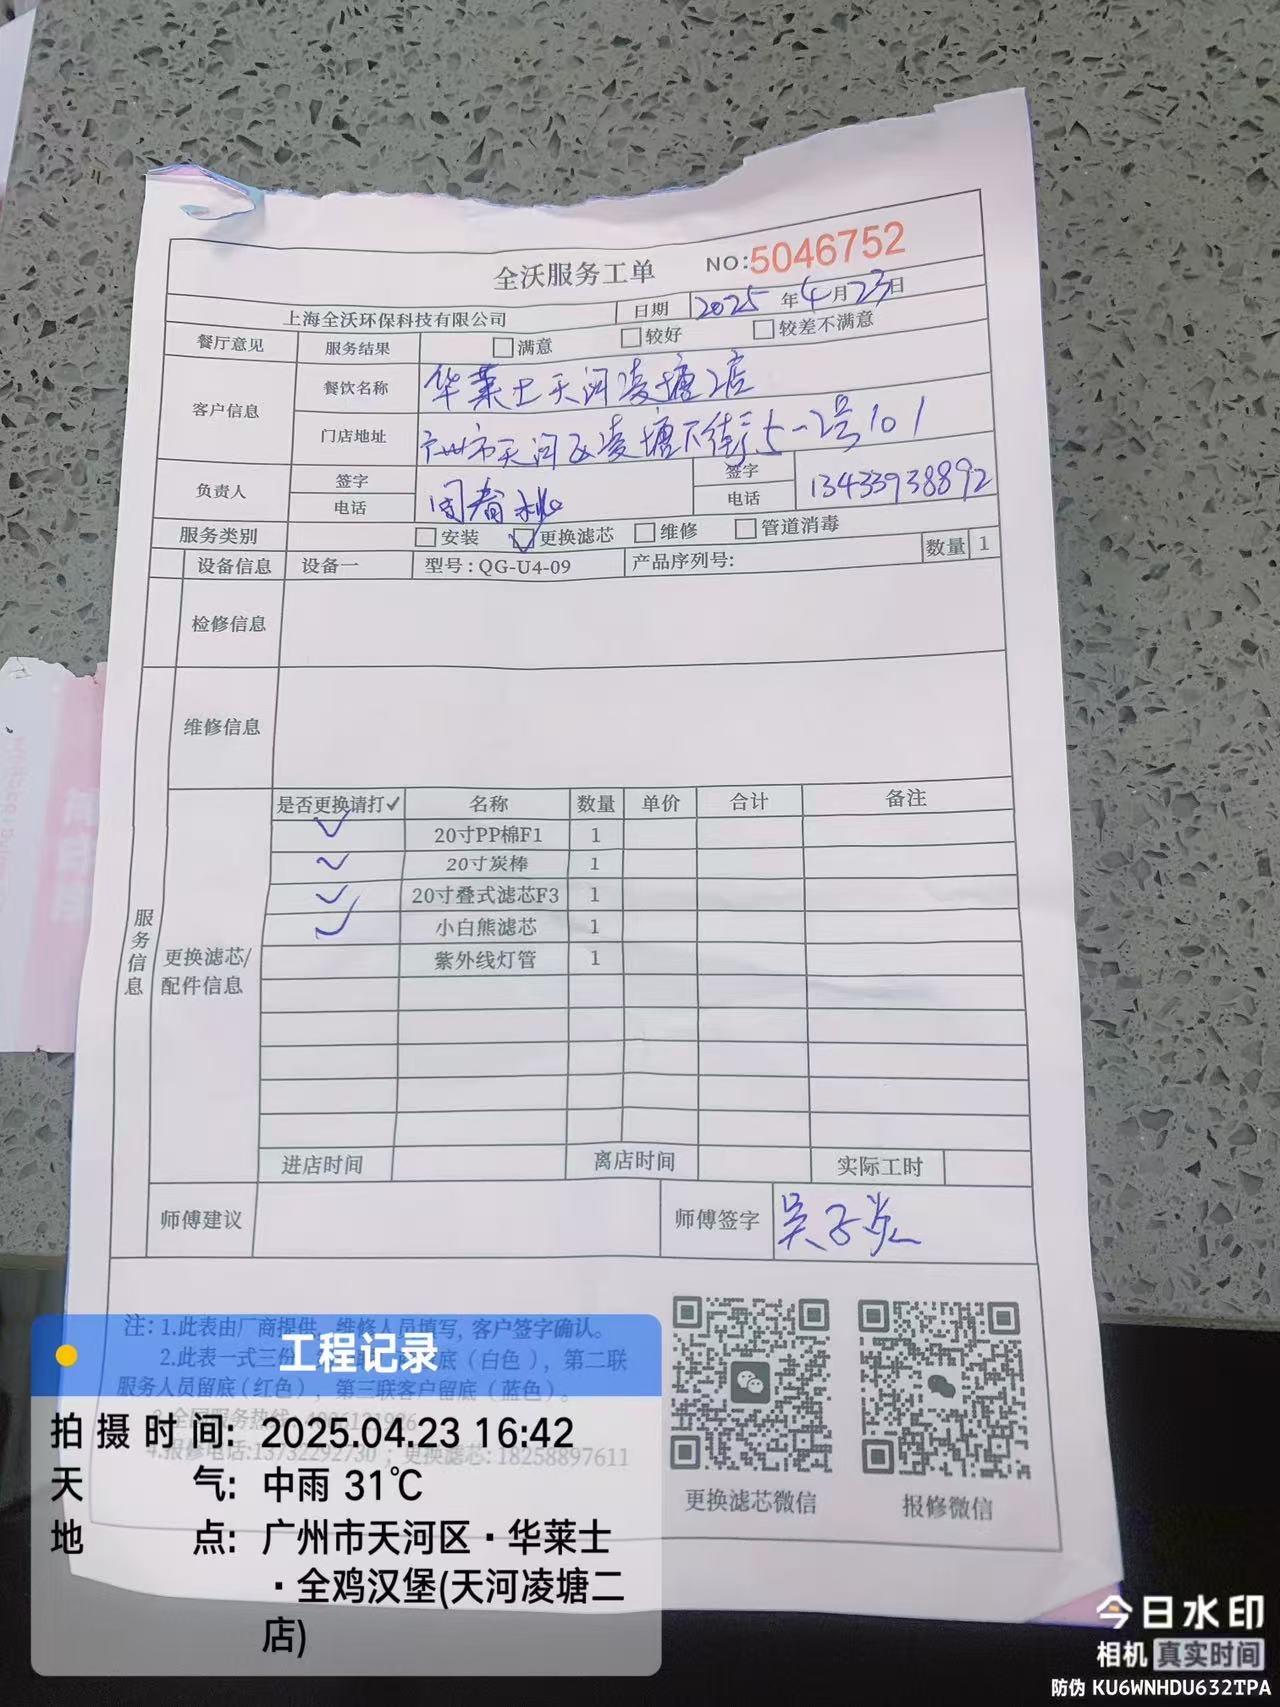 全沃服务工单 NO:5046752
上海全沃环保科技有限公司 日期 2025年4月23日
餐厅意见 服务结果 满意 较好 较差不满意
客户信息 餐饮名称 华莱士天河凌塘2店
门店地址 广州市天河区凌塘下街5-2号101
负责人 签字 签字
电话 周春 电话 13433938892
服务类别 安装 更换滤芯 维修 管道消毒
设备信息 设备一 型号:QG-U4-09 产品序列号: 数量 1
检修信息
维修信息
服务信息
更换滤芯/配件信息
是否更换请打✓ 名称 数量 单价 合计 备注
✓ 20寸PP棉F1 1
✓ 20寸炭棒 1
✓ 20寸叠式滤芯F3 1
✓ 小白熊滤芯 1
紫外线灯管 1
进店时间 离店时间 实际工时
师傅建议 师傅签字 吴子
注:1.此表由厂商提供,维修人员填写,客户签字确认。
2.此表一式三份 底(白色),第二联
服务人员留底(红色),第三联客户留底(蓝色)。
全国服务热线:
4.报修电话:13732292730;更换滤芯:18258897611
更换滤芯微信 报修微信
工程记录
拍摄时间: 2025.04.23 16:42
天气: 中雨 31℃
地点: 广州市天河区·华莱士
·全鸡汉堡(天河凌塘二
店)
今日水印
相机 真实时间
防伪 KU6WNHDU632TPA